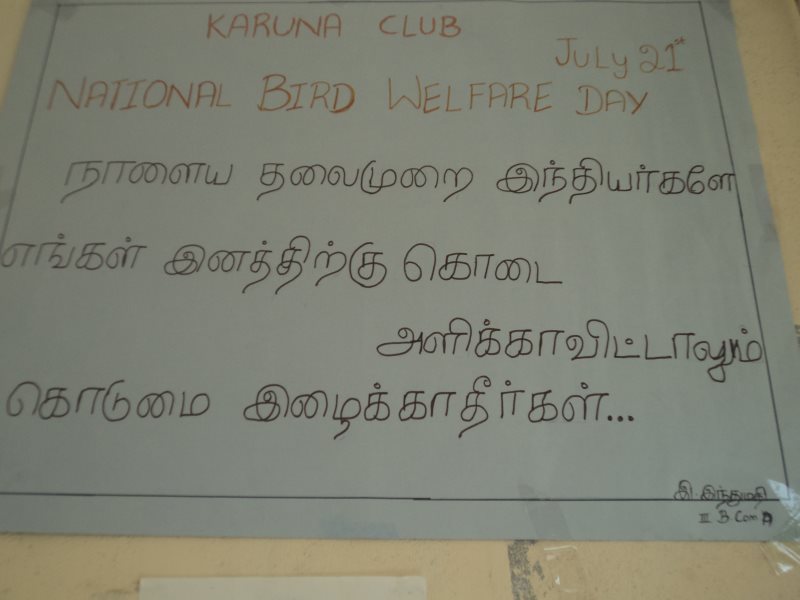 KARUNA CLUB
July 21st
NATIONAL BIRD WELFARE DAY
நாளைய தலைமுறை இந்தியர்களே
எங்கள் இனத்திற்கு கொடை
அளிக்காவிட்டாலும்
கொடுமை இழைக்காதீர்கள்...
இ. இந்துமதி
III B Com A